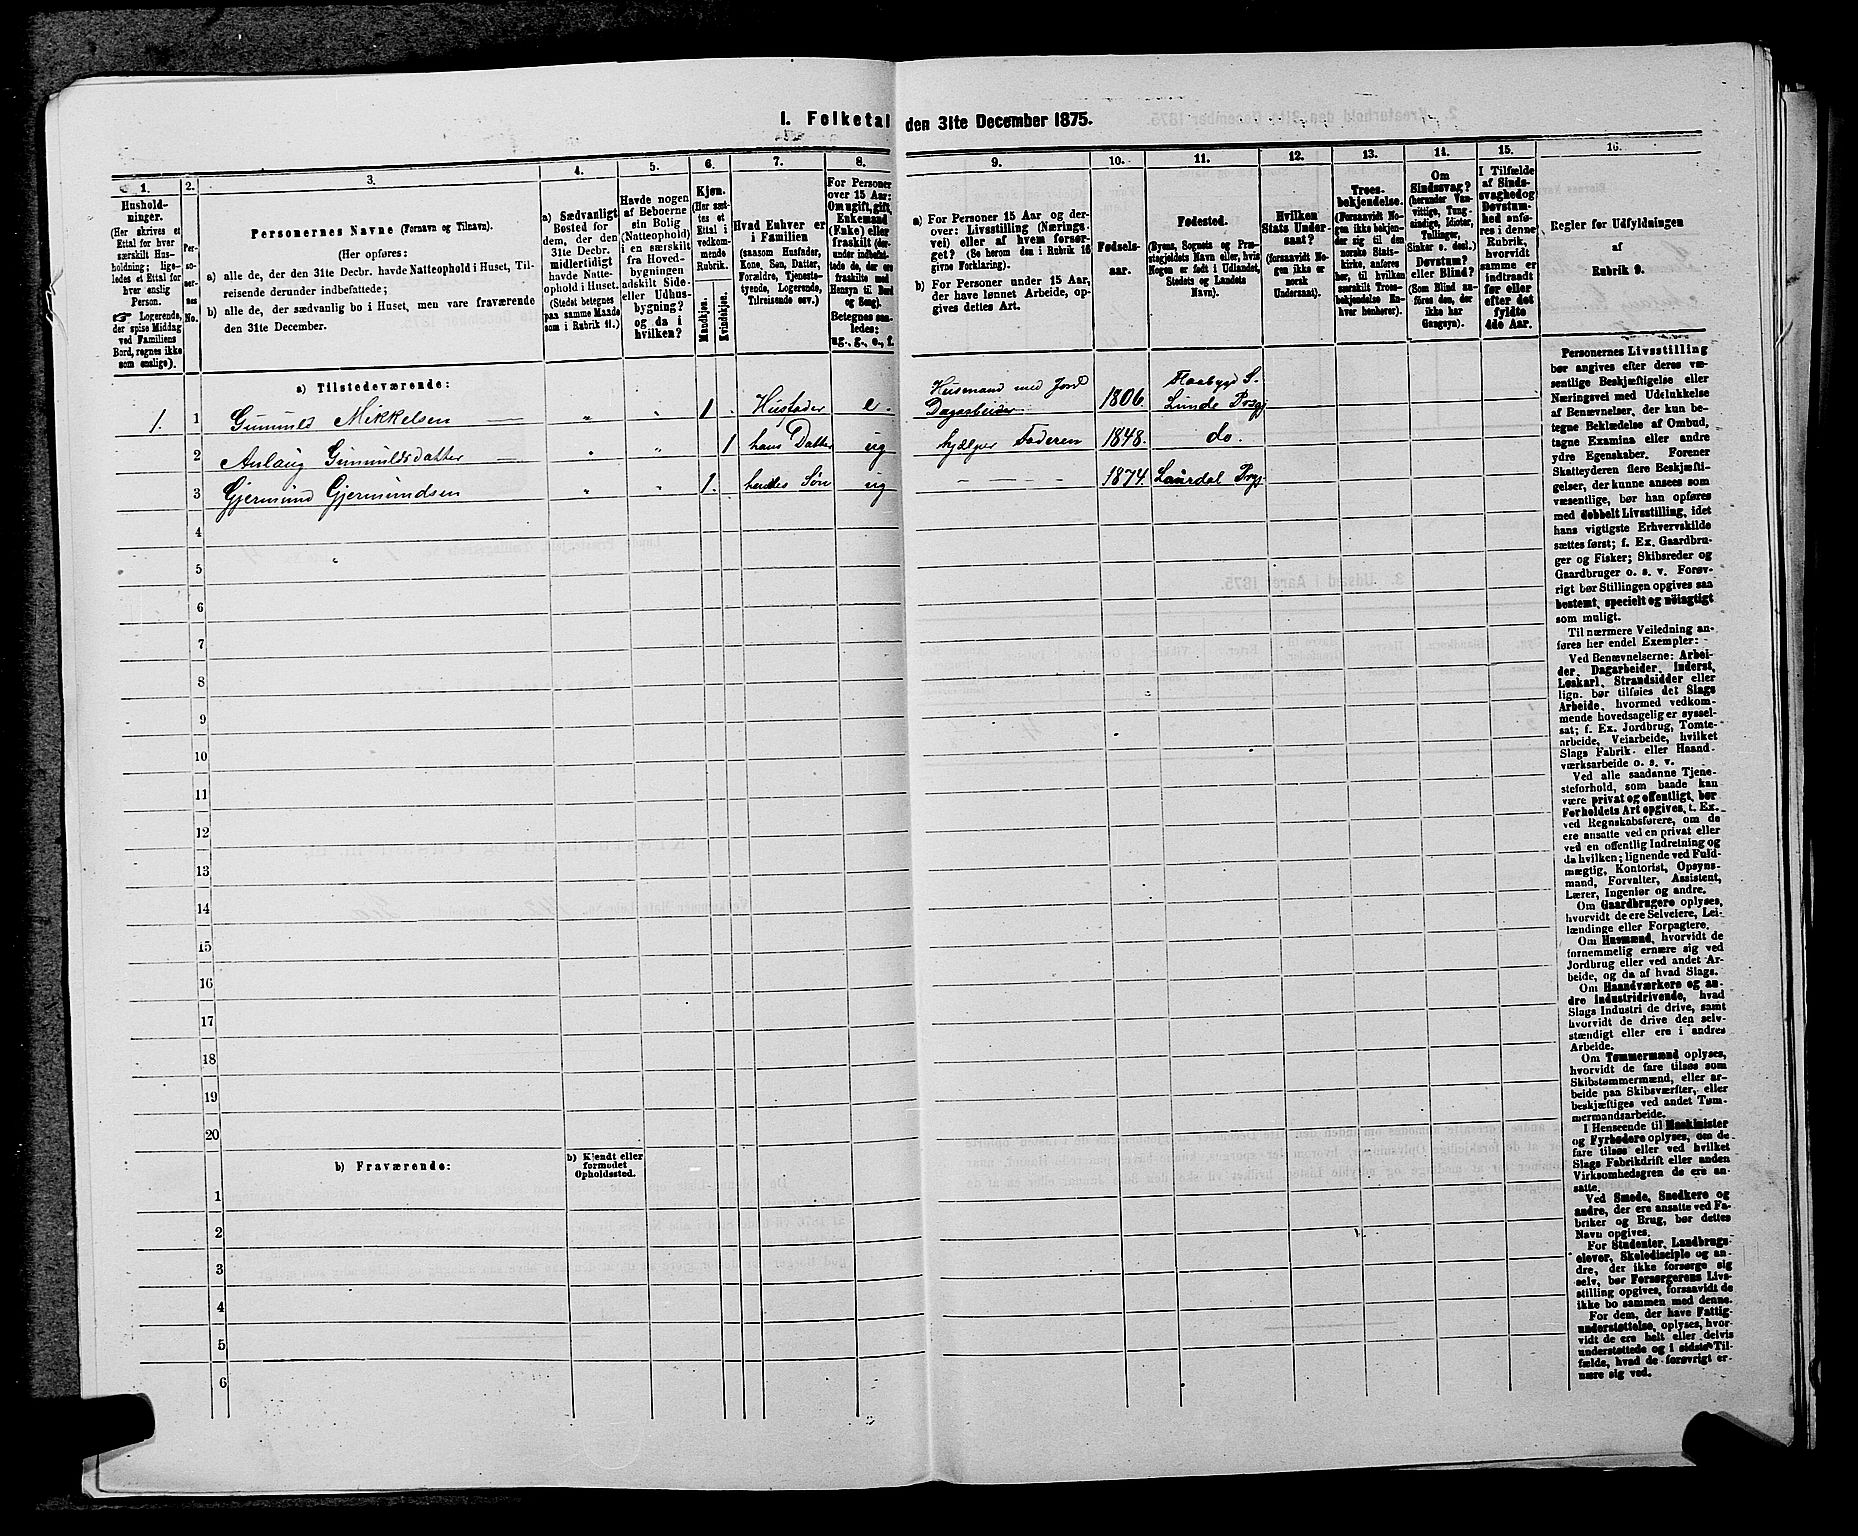 1. Folketal den 31te December 1875.
1.
2.
3.
4.
5.
6.
7.
8.
9.
10.
11.
12.
13.
14.
15.
16.
Hushold-
ninger.
(Her skrives et
Ettal for hver
særskilt Hus-
holdning; lige-
ledes et Ettal for
hver enslig
Person.
☞ Logerende,
der spise Middag
ved Familiens
Bord, regnes ikke
som enslige).
Per-
so-
ner-
nes
No.
Personernes Navne (Fornavn og Tilnavn).
(Her opføres:
a) alle de, der den 31te Decbr. havde Natteophold i Huset, Til-
reisende derunder indbefattede;
b) alle de, der sædvanlig bo i Huset, men vare fraværende
den 31te December.
a) Sædvanligt
Bosted for
dem, der den
31te Decbr.
midlertidigt
havde Natte-
ophold i Huset.
(Stedet betegnes
paa samme Maade
som i Rubrik 11.)
Havde nogen
af Beboerne
sin Bolig
(Natteophold)
i en særskilt
fra Hoved-
bygningen
adskilt Side-
eller Udhus-
bygning?
og da i
hvilken?
Kjøn.
(Her sæt-
tes et
Ettal i
vedkom-
mende
Rubrik.
Mandkjøn.
Kvindekjøn.
Hvad Enhver er
i Familien
(saasom Husfader,
Kone, Søn, Datter,
Forældre, Tjeneste-
tyende, Logerende,
Tilreisende osv.)
For Personer
over 15 Aar:
Om ugift, gift,
Enkemand
(Enke) eller
fraskilt (der-
under indbefat-
tede de, der ere
fraskilte med
Hensyn til Bord
og Seng).
Betegnes saa-
ledes:
ug., g., e., f.
a) For Personer 15 Aar og der-
over: Livsstilling (Nærings-
vei) eller af hvem forsør-
get? (Se herom den i Rubrik 16
givne Forklaring).
b) For Personer under 15 Aar,
der have lønnet Arbeide, op-
gives dettes Art.
Fødsels-
aar.
Fødested.
(Byens, Sognets og Præ-
stegjeldets Navn eller, hvis
Nogen er født i Udlandet,
Stedets og Landets
Navn).
Hvilken
Stats Under-
saat?
(forsaavidt No-
gen ikke er
norsk
Undersaat).
Troes-
bekjendelse.
(Forsaavidt No-
gen ikke bekjen-
der sig til den
norske Stats-
kirke, anføres
her, til hvilken
særskilt Troes-
bekjendelse En-
hver henhører).
Om
Sindssvag?
(herunder Van-
vittige, Tung-
sindige, Idioter,
Tullinger,
Sinker o. desl.)
Døvstum?
eller Blind?
(Som Blind an-
føres den, der
ikke har
Gangsyn).
I Tilfælde
af Sinds-
svaghed og
Døvstum-
hed anfø-
res i denne
Rubrik,
hvorvidt
samme er
indtraadt
før eller
efter det
fyldte
4de Aar.
Regler for Udfyldningen
af
Rubrik 9.
a) Tilstedeværende:
1. 1 Gunnuls Mikkelsen — „ „ 1 . Husfader e. Husmand med Jord Dagarbeider 1806. Flaabygd S. Lunde Prgj
2 Aslaug Gunnulsdatter — „ „ 1 hans Datter ug hjælper Faderen 1848. do.
3 Gjermund Gjermundsen „ „ 1. hendes Søn ug — — — 1874. Laurdal Prgj
4
5
6
7
8
9
10
11
12
13
14
15
16
17
18
19
20
b) Fraværende:
b) Kjendt eller
formodet
Opholdssted.
1
2
3
4
5
6
Personernes Livsstilling
bør angives efter deres væ-
sentlige Beskjæftigelse eller
Næringsvei med Udelukkelse
af Benævnelser, der kun be-
tegne Beklædelse af Ombud,
tagne Examina eller andre
ydre Egenskaber. Forener
Skatteyderen flere Beskjæfti-
gelser, der kunne ansees som
væsentlige, bør han opføres
med dobbelt Livsstilling, idet
hans vigtigste Erhvervskilde
sættes først; f. Ex. Gaardbru-
ger og Fisker; Skibsreder og
Gaardbruger o. s. v. Forøv-
rigt bør Stillingen opgives saa
bestemt, specielt og nøiagtigt
som muligt.
Til nærmere Veiledning an-
føres her endel Exempler:
Ved Benævnelserne: Arbei-
der, Dagarbeider, Inderst,
Løskarl, Strandsidder eller
lign. bør tilføies det Slags
Arbeide, hvormed vedkom-
mende hovedsagelig er syssel-
sat; f. Ex. Jordbrug, Tomte-
arbeide, Veiarbeide, hvilket
Slags Fabrik- eller Haand-
værksarbeide o. s. v.
Ved alle saadanne Tjene-
steforhold, som baade kan
være privat og offentligt, bør
Forholdets Art opgives, t. Ex.
ved Regnskabsførere, om de
ere ansatte ved en privat eller
ved en offentlig Indretning og
da hvilken; lignende ved Fuld-
mægtig, Kontorist, Opsyns-
mand, Forvalter, Assistent,
Lærer, Ingeniør og andre.
Om Gaardbrugere oplyses,
hvorvidt de ere Selveiere, Lei-
lændinge eller Forpagtere.
Om Husmænd, hvorvidt de
fornemmelig ernære sig ved
Jordbrug eller ved andet Ar-
beide, og da af hvad Slags.
Om Haandværkere og an-
dre Industridrivende, hvad
Slags Industri de drive, samt
hvorvidt de drive den selv-
stændigt eller ere i andres
Arbeide.
Om Tømmermænd oplyses,
hvorvidt de fare tilsøs som
Skibstømmermænd, eller ar-
beide paa Skibsværfter, eller
beskjæftiges ved andet Tøm-
mermandsarbeide.
I Henseende til Maskinister
og Fyrbødere oplyses, om de
fare tilsøs eller ved hvilket
Slags Fabrikdrift eller anden
Virksomhedsgren de ere an-
satte.
Ved Smede, Snedkere og
andre, der ere ansatte ved Fa-
briker og Brug, bør dettes
Navn opgives.
For Studenter, Landbrugs-
elever, Skoledisciple og an-
dre, der ikke forsørge sig
selv, bør Forsørgerens Livs-
stilling opgives, forsaavidt de
ikke bo sammen med denne.
For dem, der have Fattig-
understøttelse, oplyses, hvor-
vidt de ere helt eller delvis
understøttede og i sidste Til-
fælde, hvad de forøvrigt er-
nære sig ved.